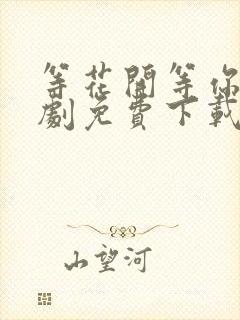 等花開等你
劇免費下載
山望河